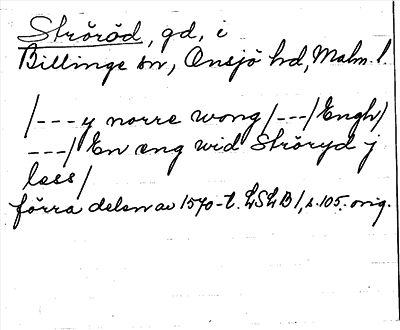 Ströröd, gd, i
Billinge sn, Onsjö hd, Malm. l.
/--- y norre wong /---/ Engh/
---/ En eng wid Ströryd j
less/
förra delen av 1570-t. LSLB 1, s. 105. orig.